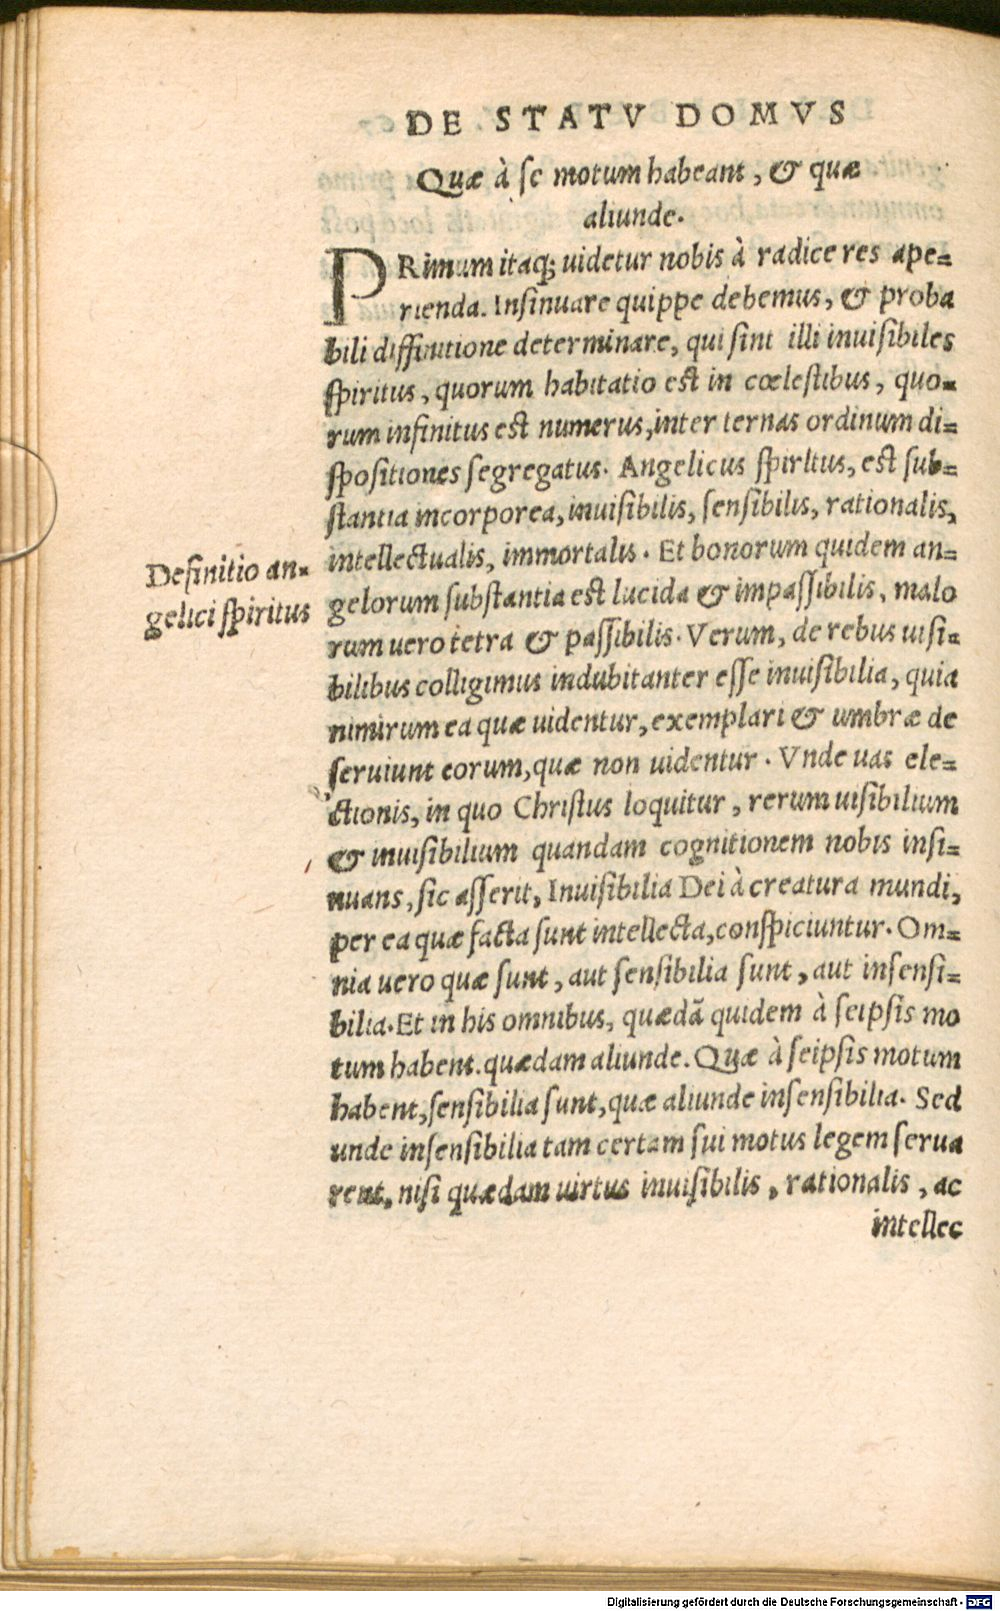 DE STATV DOMVS
Quæ à se motum habeant, & quæ
aliunde.
PRimum itaq; uidetur nobis à radice res ape-
rienda. Insinuare quippe debemus, & proba
bili diffinitione determinare, qui sint illi inuisibiles
spiritus, quorum habitatio est in cœlestibus, quo-
rum infinitus est numerus, inter ternas ordinum di-
spositiones segregatus. Angelicus spiritus, est sub-
stantia incorporea, inuisibilis, sensibilis, rationalis,
intellectualis, immortalis. Et bonorum quidem an-
Definitio an-
gelici spiritus
gelorum substantia est lucida & impassibilis, malo
rum uero tetra & passibilis. Verum, de rebus uisi-
bilibus colligimus indubitanter esse inuisibilia, quia
nimirum ea quæ uidentur, exemplari & umbræ de
seruiunt eorum, quæ non uidentur. Vnde uas ele-
ctionis, in quo Christus loquitur, rerum uisibilium
& inuisibilium quandam cognitionem nobis insi-
nuans, sic asserit, Inuisibilia Dei à creatura mundi,
per ea quæ facta sunt intellecta, conspiciuntur. Om-
nia uero quæ sunt, aut sensibilia sunt, aut insensi-
bilia. Et in his omnibus, quædã quidem à seipsis mo
tum habent. quædam aliunde. Quæ à seipsis motum
habent, sensibilia sunt, quæ aliunde insensibilia. Sed
unde insensibilia tam certam sui motus legem serua
rent, nisi quædam uirtus inuisibilis, rationalis, ac
intellec
Digitalisierung gefördert durch die Deutsche Forschungsgemeinschaft - DFG